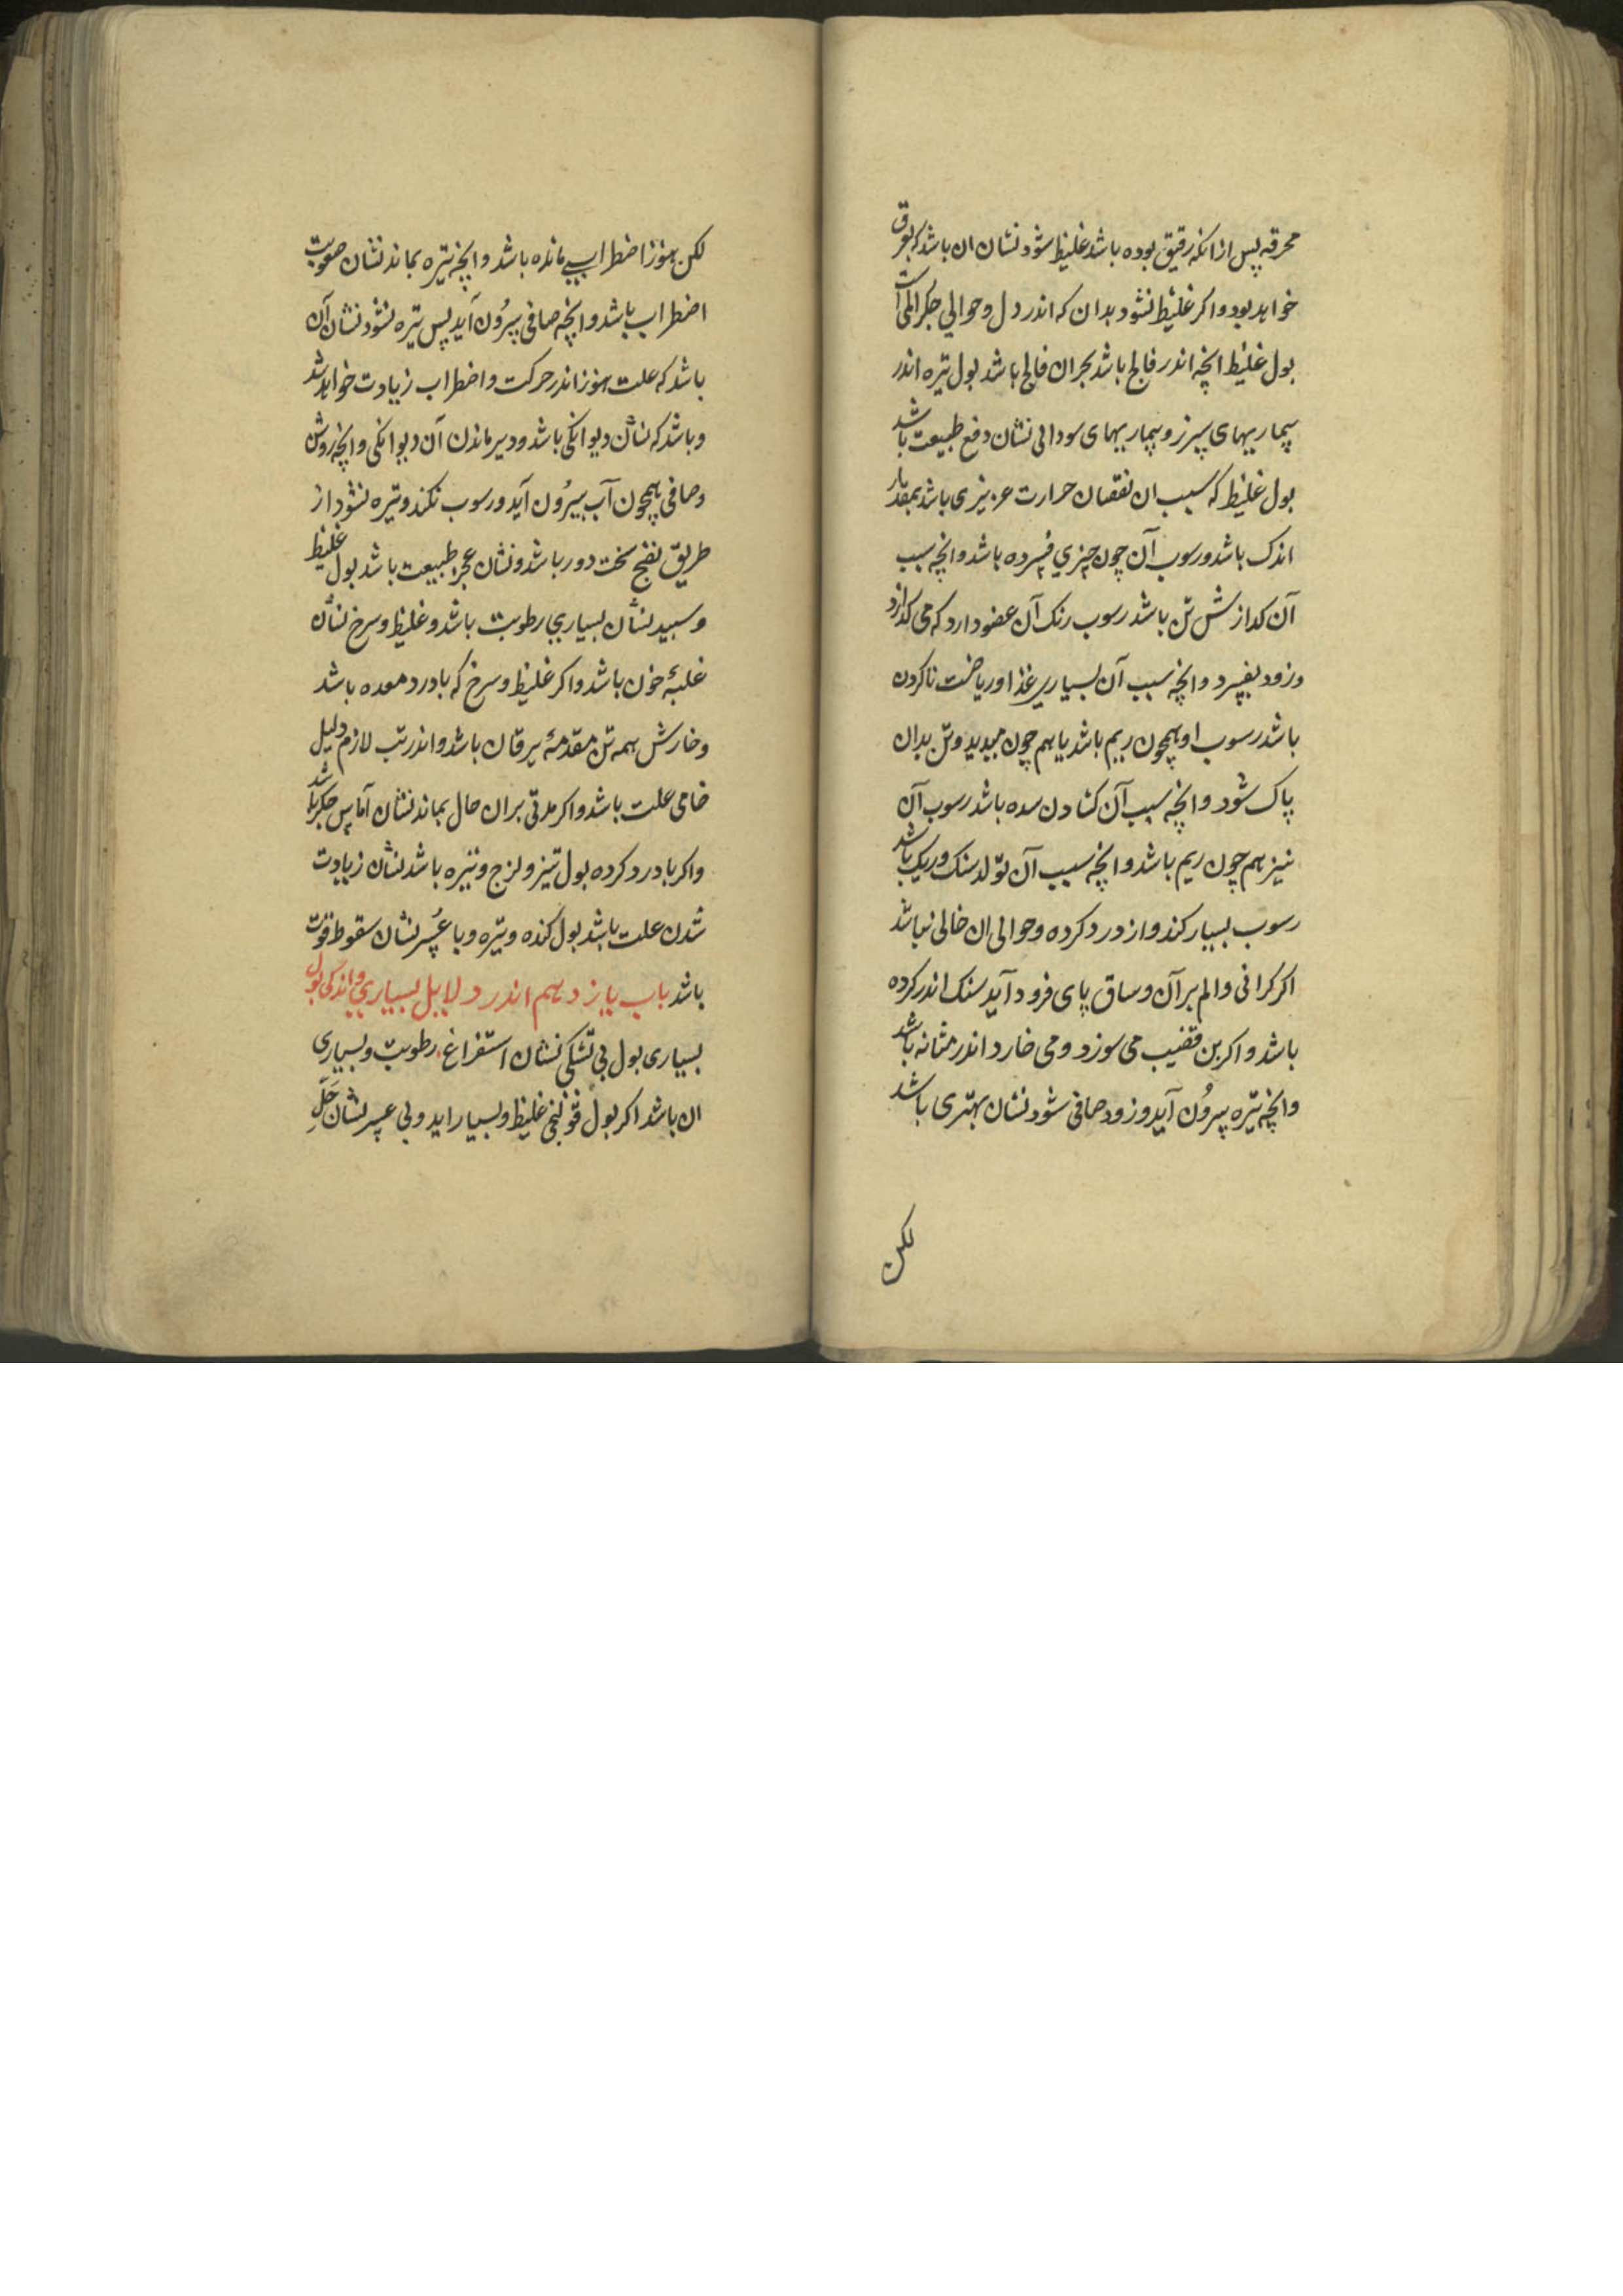 محرقه پس ازانکه رقیق بوده باشد غلیظ شود نشان ان باشد که بعرق
خواهد بود واکر غلیظ نشود بدان که اندر دل وحوالی جکر المی است
بول غلیظ انچه اندر فالج باشد بحران فالج باشد بول تیره اندر
بیماریهای سپرز وبیماریهای سودائی نشان دفع طبیعت باشد
بول غلیظ که سبب ان نقصان حرارت عزیزی باشد بمقدار
اندک باشد ورسوب آن چون چیزی فسرده باشد وانچه سبب
آن کدازش تن باشد رسوب رنک آن عضو دارد که می کدازد
وزود بفسرد وانچه سبب آن بسیاری غذا وریاضت ناکردن
باشد رسوب او همچون ریم باشد یا هم چون صدید وتن بدان
پاک شود وانچه سبب آن کشادن سده باشد رسوب آن
نیز هم چون ریم باشد وانچه سبب آن تولد سنک وریک باشد
رسوب بسیار کند واز درد کرده وحوالی ان خالی نباشد
اکر کرانی والم بر آن وساق پای فرود آید سنک اندر کرده
باشد واکر بن قضیب می سوزد ومی خارد اندر مثانه باشد
وانچه تیره بیرُون آید وزود صافی شود نشان بهتری باشد
لکن
لکن هنوز اضطرابی مانده باشد وانچه تیره بماند نشان صعوبت
اضطراب باشد وانچه صافی بیرُون آید پس تیره نشود نشان آن
باشد که علت هنوز اندر حرکت واضطراب زیادت خواهد شد
وباشد که نشان دیوانکی باشد ودیر ماندن آن دیوانکی وانچه روشن
وصافی همچون آب بیرُون آید ورسوب نکند وتیره نشود از
طریق نضج سخت دور باشد ونشان عجز طبیعت باشد بول غلیظ
وسبید نشان بسیاری رطوبت باشد وغلیظ وسرخ نشان
غلبهٔ خون باشد واکر غلیظ وسرخ که با درد معده باشد
وخارش همه تن مقدمهٔ یرقان باشد واندر تب لازم دلیل
خامی علت باشد واکر مدتی بران حال بماند نشان آماس جکر باشد
واکر با درد کرده بول تیز ولزج وتیره باشد نشان زیادت
شدن علت باشد بول کنده وتیره وبا عُسر نشان سقوط قوت
باشد باب یازدهم اندر دلایل بسیاری واندکی بول
بسیاری بول بی تشنکی نشان استفراغ رطوبت وبسیاری
ان باشد اکر بول قولنجی غلیظ وبسیار اید وبی عسر نشان حَلِّ